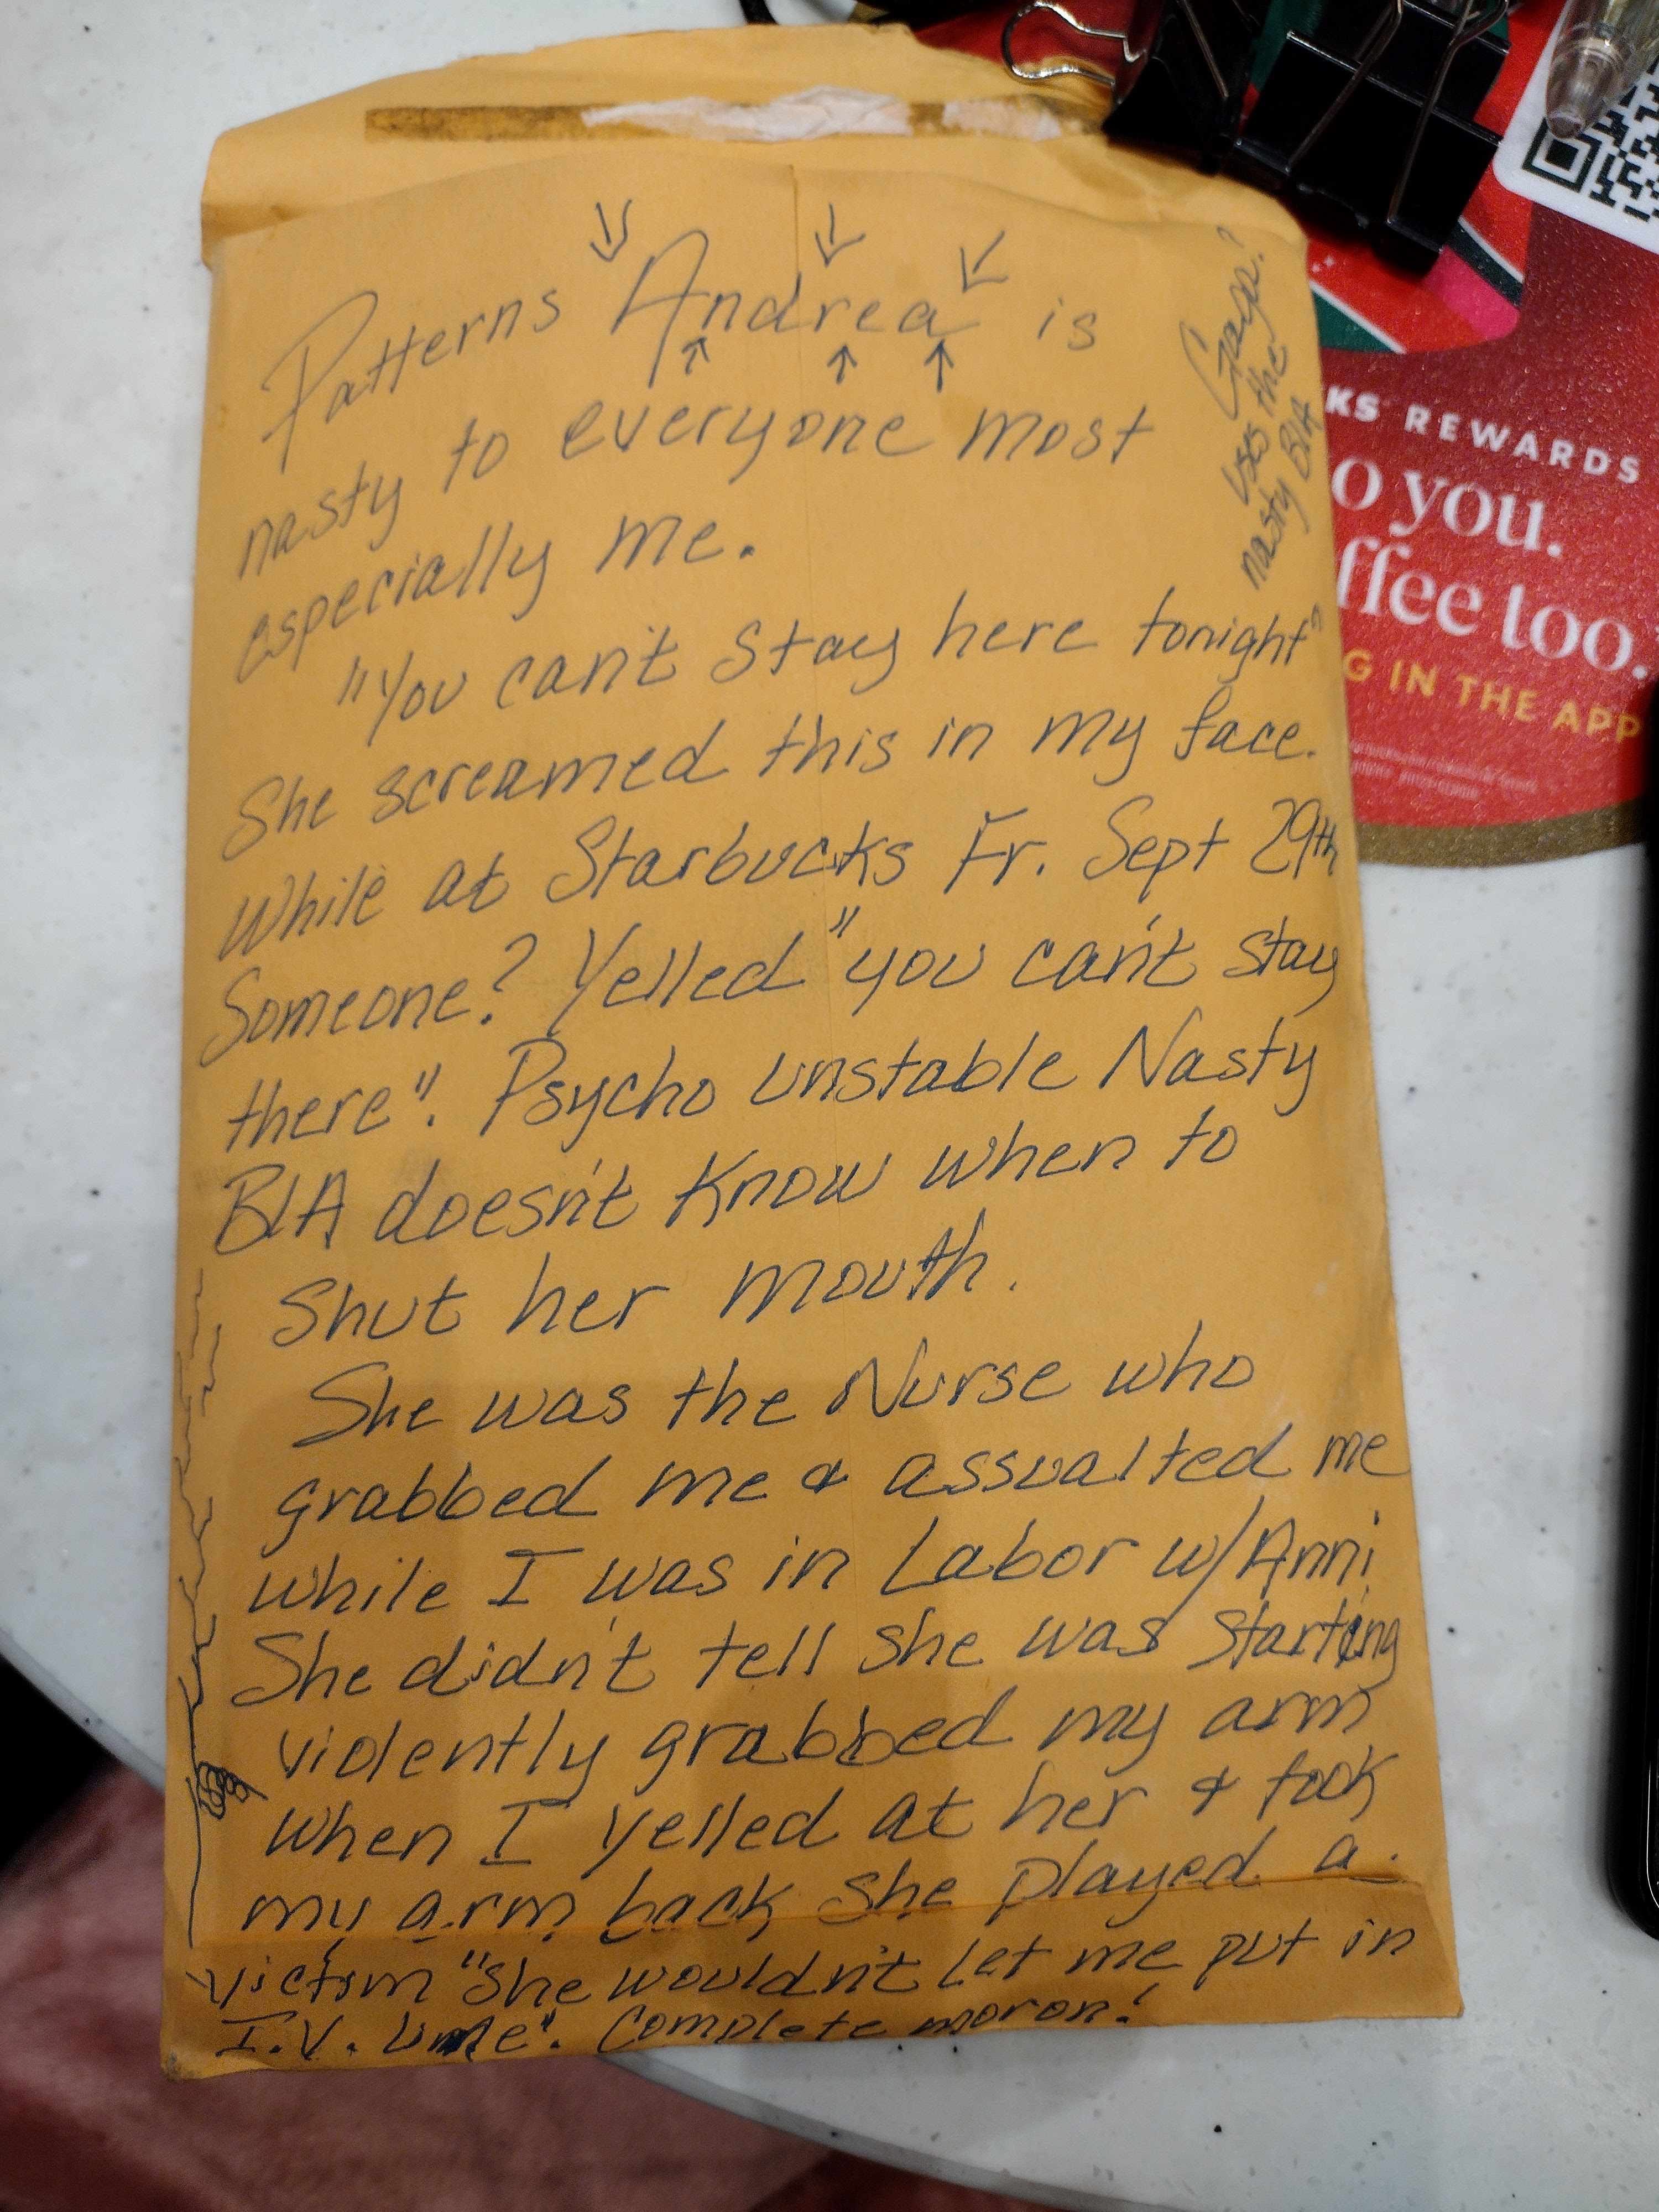 Patterns Andrea is
nasty to everyone most
especially me.
"You can't stay here tonight"
She screamed this in my face.
While at Starbucks Fr. Sept 29th
Someone? Yelled "you can't stay
there". Psycho unstable Nasty
BIA doesn't know when to
Shut her mouth.
She was the Nurse who
grabbed me & assualted me
while I was in Labor w/Anni
She didn't tell she was starting
violently grabbed my arm
when I yelled at her & took
my arm back she played a
victim "she wouldn't let me put in
I.V. line". Complete moron!
Gaga?
uses the
nasty BIA
KS REWARDS
o you.
ffee too.
G IN THE APP